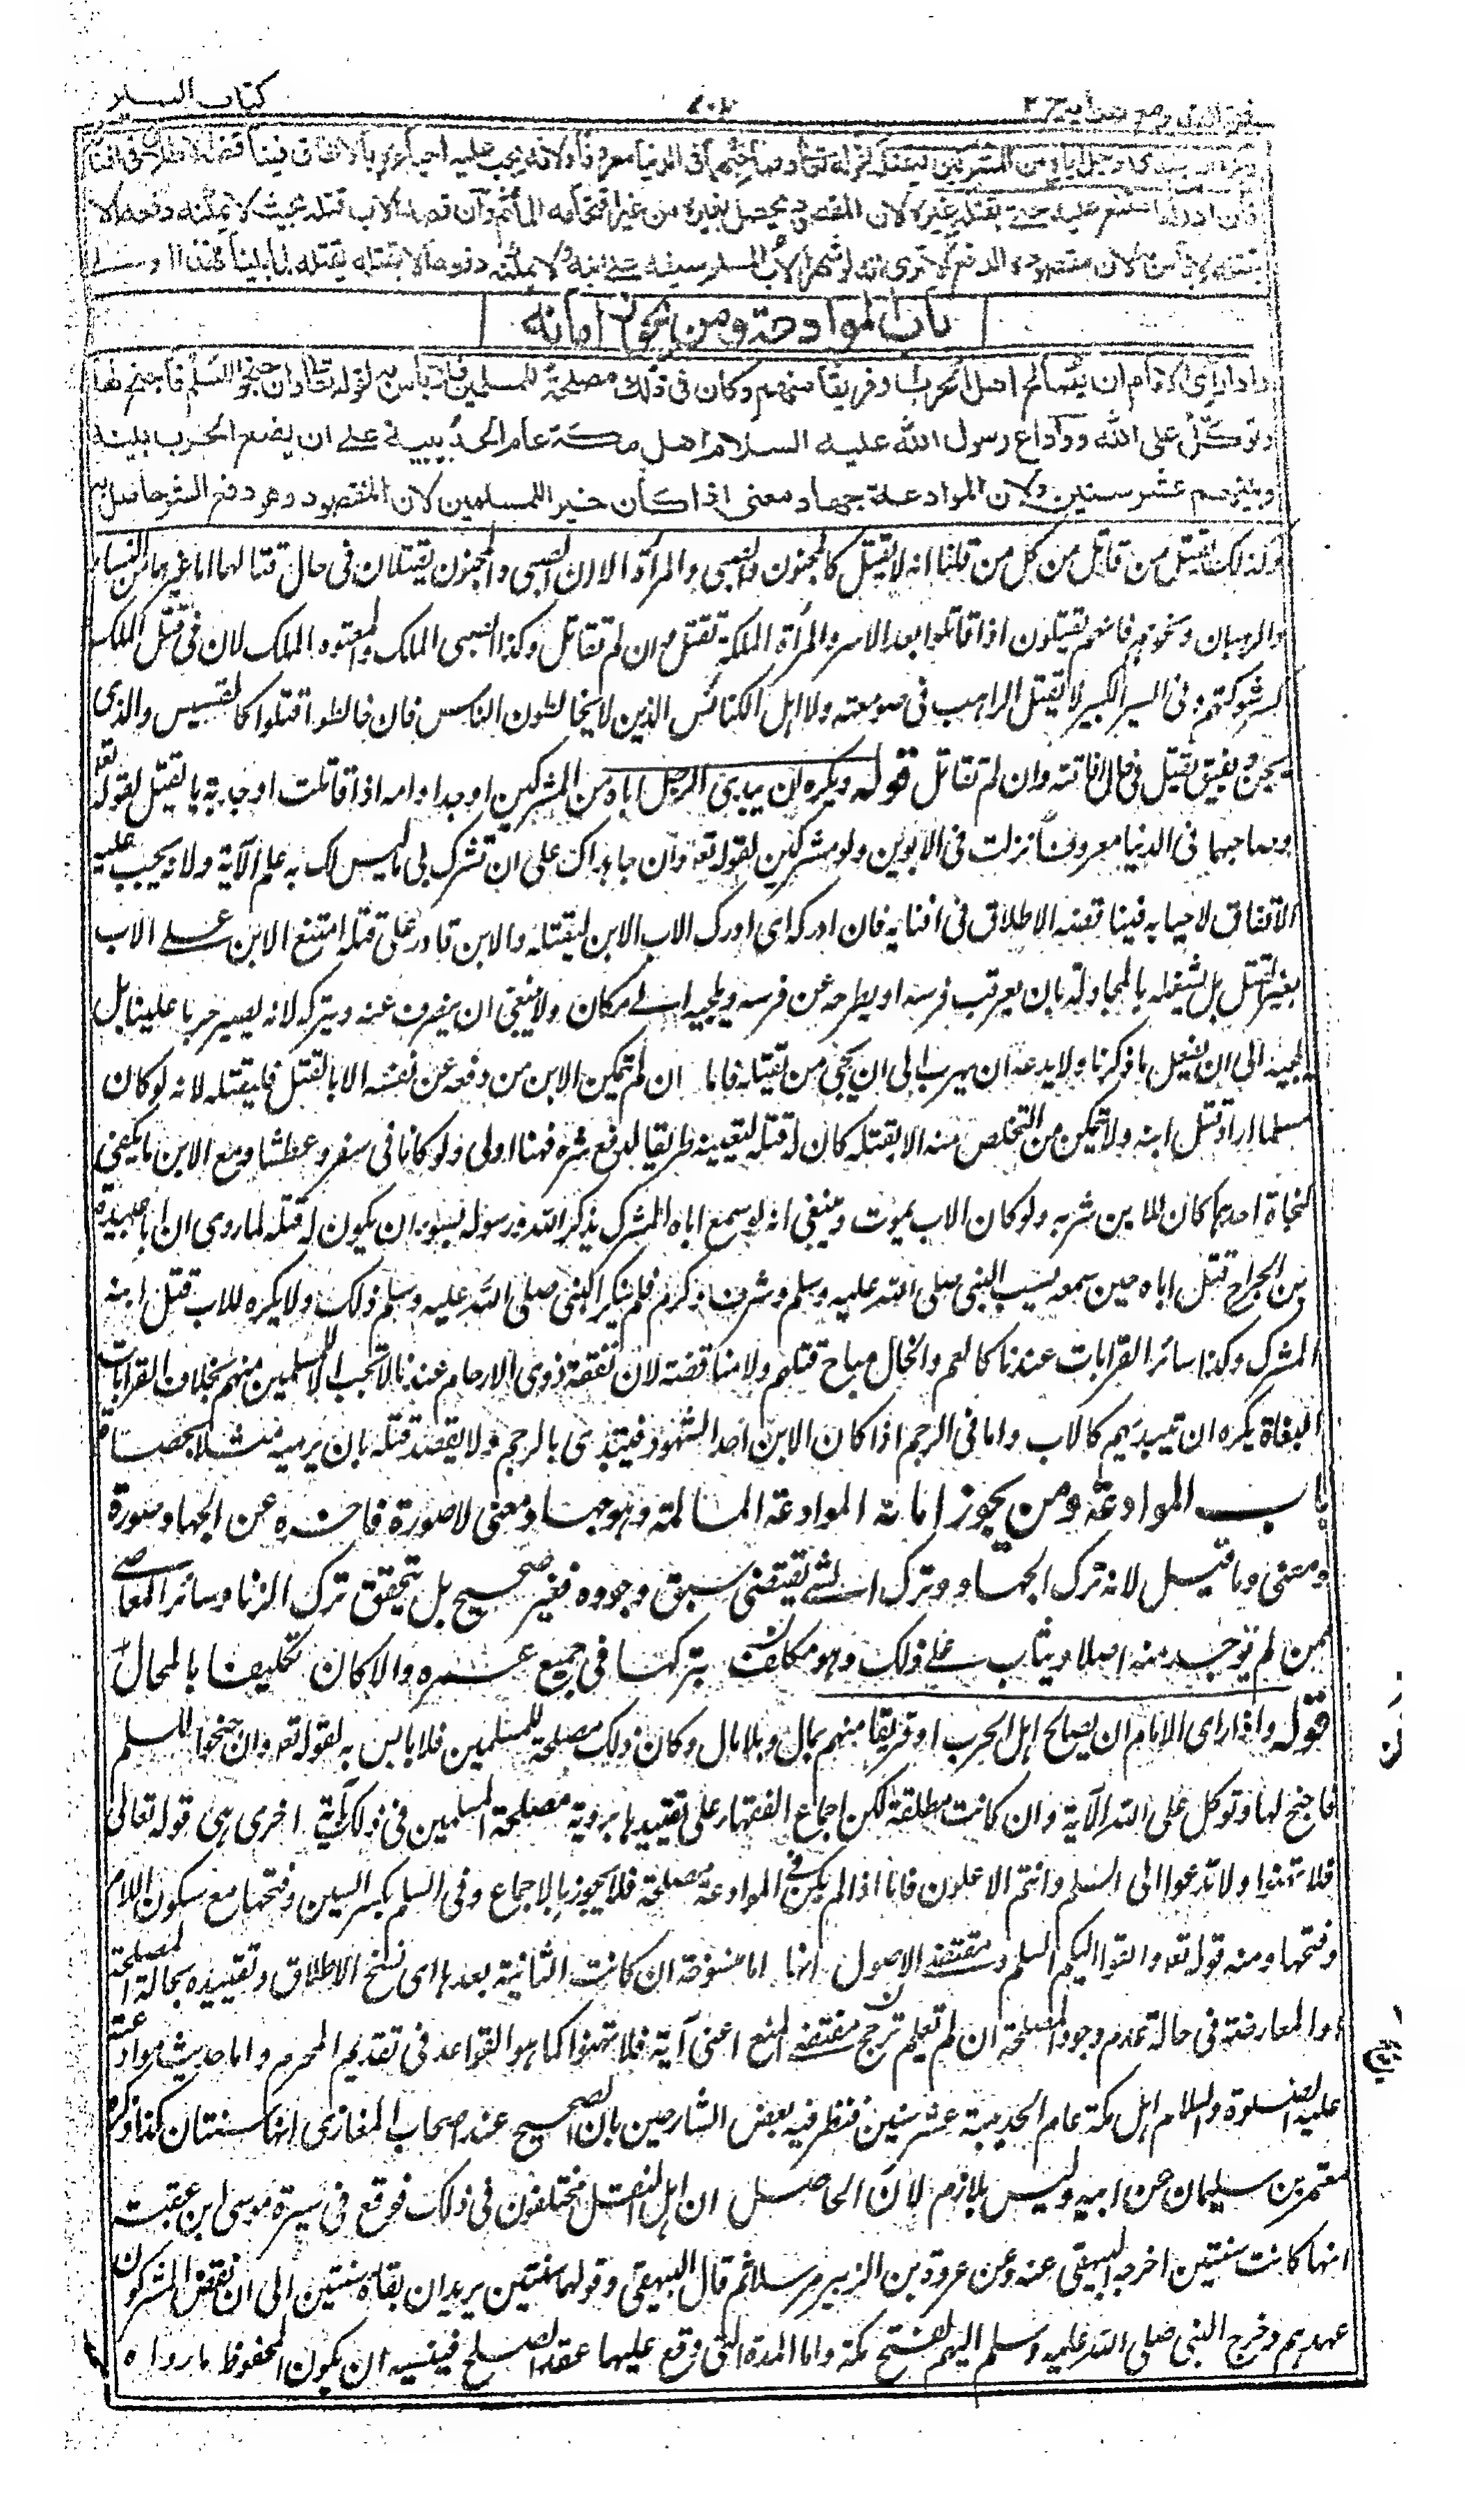 كتاب السير
فتح القدير مع هداية ج ٢
ويكره ان يبتدئ الرجل اباه من المشركين فيقتله لقوله تعالى وصاحبهما فى الدنيا معروفا ولانه يجب عليه احياؤه بالانفاق فيناقضه الاطلاق فى افنائه
فان ادركه امتنع عليه حتى يقتله غيره لان المقصود يحصل بغيره من غير اقتحامه المأثم وان قصد الاب قتله بحيث لا يمكنه دفعه الا
بقتله لا بأس به لان مقصوده الدفع الا ترى انه لو شهر الاب المسلم سيفه على ابنه ولا يمكنه دفعه الا بقتله يقتله لما بينا فهذا اولى
باب الموادعة ومن يجوز امانه
واذا رأى الامام ان يصالح اهل الحرب او فريقا منهم وكان فى ذلك مصلحة للمسلمين فلا بأس به لقوله تعالى وان جنحوا للسلم فاجنح لها
وتوكل على الله ووادع رسول الله عليه السلام اهل مكة عام الحديبية على ان يضع الحرب بينه
وبينهم عشر سنين ولان الموادعة جهاد معنى اذا كان خيرا للمسلمين لان المقصود وهو دفع الشر حاصل به
وكذلك يقتل من قاتل من كل من قلنا انه لا يقتل كالمجنون والصبى والمرأة الا ان الصبى والمجنون يقتلان فى حال قتالهما اما غيرهما من النساء
والرهبان ونحوهم فانهم يقتلون اذا قاتلوا بعد الاسر والمرأة الملكة تقتل وان لم تقاتل وكذا الصبى الملك والمعتوه الملك لان فى قتل الملك
كسر شوكتهم وفى السير الكبير لا يقتل الراهب فى صومعته ولا اهل الكنائس الذين لا يخالطون الناس فان خالطوا قتلوا كالقسيس والذى
يجن ويفيق يقتل فى حال افاقته وان لم تقاتل قوله ويكره ان يبتدئ الرجل اباه من المشركين او جده او امه اذا قاتلت او جدته با يقتل لقوله تعه
وصاحبهما فى الدنيا معروفا نزلت فى الابوين ولو مشركين لقوله تعه وان جاهداك على ان تشرك بى ما ليس لك به علم الآية ولانه يجب عليه
الانفاق لاحيائه فينا قضه الاطلاق فى افنائه فان ادركه اى ادرك الاب الابن ليقتله والابن قادر على قتله امتنع الابن على الاب
بغير القتل بل يشغله بالمجاولة بان يعرقب فرسه او يطرحه عن فرسه ويلجيه الى مكان ولا ينبغى ان ينصرف عنه ويتركه لانه يصير حربا علينا بل
يلجيه الى ان يفعل ما ذكرنا ولا يدعه ان يهرب الى ان يجئ من يقتله فاما ان لم يتمكن الابن من دفعه عن نفسه الا بالقتل فليقتله لانه لو كان
مسلما اراد قتل ابنه ولا يتمكن من التخلص منه الا بقتله كان له قتله لتعينه طريقا لدفع شره فهنا اولى ولو كانا فى سفر وعطشا ومع الابن ما يكفى
لنجاة احدهما كان للابن شربه ولو كان الاب يموت وينبغى انه لو سمع اباه المشرك يذكر الله ورسوله بسوء ان يكون له قتله لما روى ان ابا عبيدة
بن الجراح قتل اباه حين سمعه يسب النبى صلى الله عليه وسلم وشرف وكرم فلم ينكر النبى صلى الله عليه وسلم ذلك ولا يكره للاب قتل ابنه
المشرك وكذا سائر القرابات عندنا كالعم والخال مباح قتلهم ولا مناقضة لان نفقة ذوى الارحام عندنا لا تجب الا للمسلمين منهم بخلاف القرابات
البغاة يكره ان يبتديهم كالاب واما فى الرجم اذا كان الابن احد الشهود فيبتدى بالرجم ولا يقصد قتله بان يرميه مثلا بحصاة
باب الموادعة ومن يجوز امانه الموادعة المسالمة وهو جهاد معنى لا صورة فاخره عن الجهاد صورة
ومعنى وما قيل لانه ترك الجهاد وترك الشئ يقتضى سبق وجوده فغير صحيح بل يتحقق ترك الزنا وسائر المعاصى
ممن لم توجد منه اصلا ويثاب على ذلك وهو مكلف بتركها فى جميع عمره والا كان تكليفا بالمحال
قوله واذا راى الامام ان يصالح اهل الحرب او فريقا منهم بمال وبلا مال وكان ذلك مصلحة للمسلمين فلا باس به لقوله تعه وان جنحوا للسلم
فاجنح لها وتوكل على الله الآية وان كانت مطلقة لكن اجماع الفقهاء على تقييدها برؤية مصلحة المسلمين فى ذلك بآية اخرى هى قوله تعالى
فلا تهنوا ولا تدعوا الى السلم وانتم الاعلون فاما اذا لم يكن فى الموادعة مصلحة فلا يجوز بالاجماع وفى السلم بكسر السين وفتحها مع سكون اللام
وفتحها ومنه قوله تعه والقوا اليكم السلم ومقتضى الاصول انها اما منسوخة ان كانت الثانية بعدها اى نسخ الاطلاق وتقييده بحالة المصلحة
او المعارضة فى حالة عدم وجود المصلحة ان لم تعلم ثم ترجح مقتضى المنع اعنى آية فلا تهنوا كما هو القواعد فى تقديم المحرم واما حديث موادعته
عليه الصلوة والسلام اهل مكة عام الحديبية عشر سنين فنظر فيه بعض الشارحين بان الصحيح عند اصحاب المغازى انها سنتان كذا ذكره
معتمر بن سليمان عن ابيه وليس بلازم لان الحاصل ان اهل النقل مختلفون فى ذلك فوقع فى سيرة موسى ابن عقبة
انها كانت سنتين اخرجه البيهقى عنه وعن عروة بن الزبير مرسلا ثم قال البيهقى وقولهما سنتين يريدان بقاءه سنتين الى ان نقض المشركون
عهدهم وخرج النبى صلى الله عليه وسلم اليهم لفتح مكة واما المدة التى وقع عليها عقد الصلح فيشبه ان يكون المحفوظ ما رواه